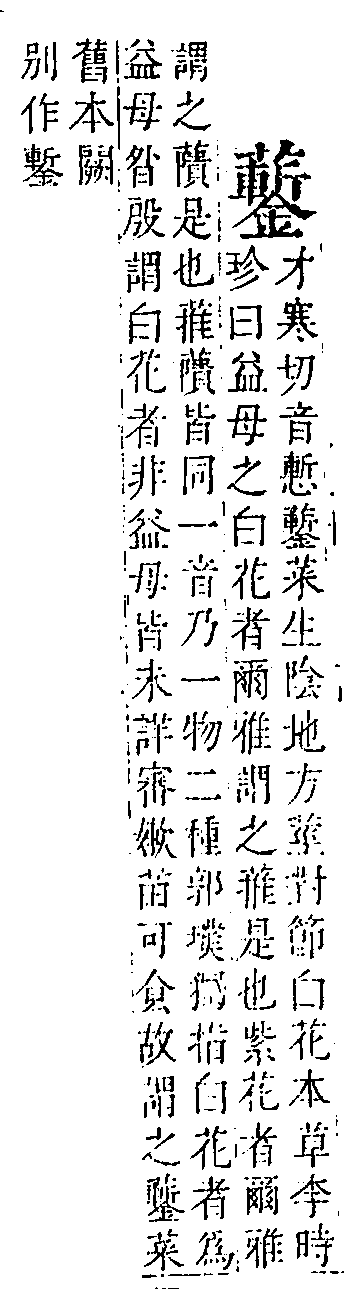 菨才寒切音慙菨菜生陰地方莖對節白花本草李時
珍曰益母之白花者爾雅謂之蓷是也紫花者爾雅
謂之藬是也蓷藬皆同一音乃一物二種郭璞獨指白花者爲
益母昝殷謂白花者非益母皆未詳審嫩苗可食故謂之菨菜
舊本闕
別作菨